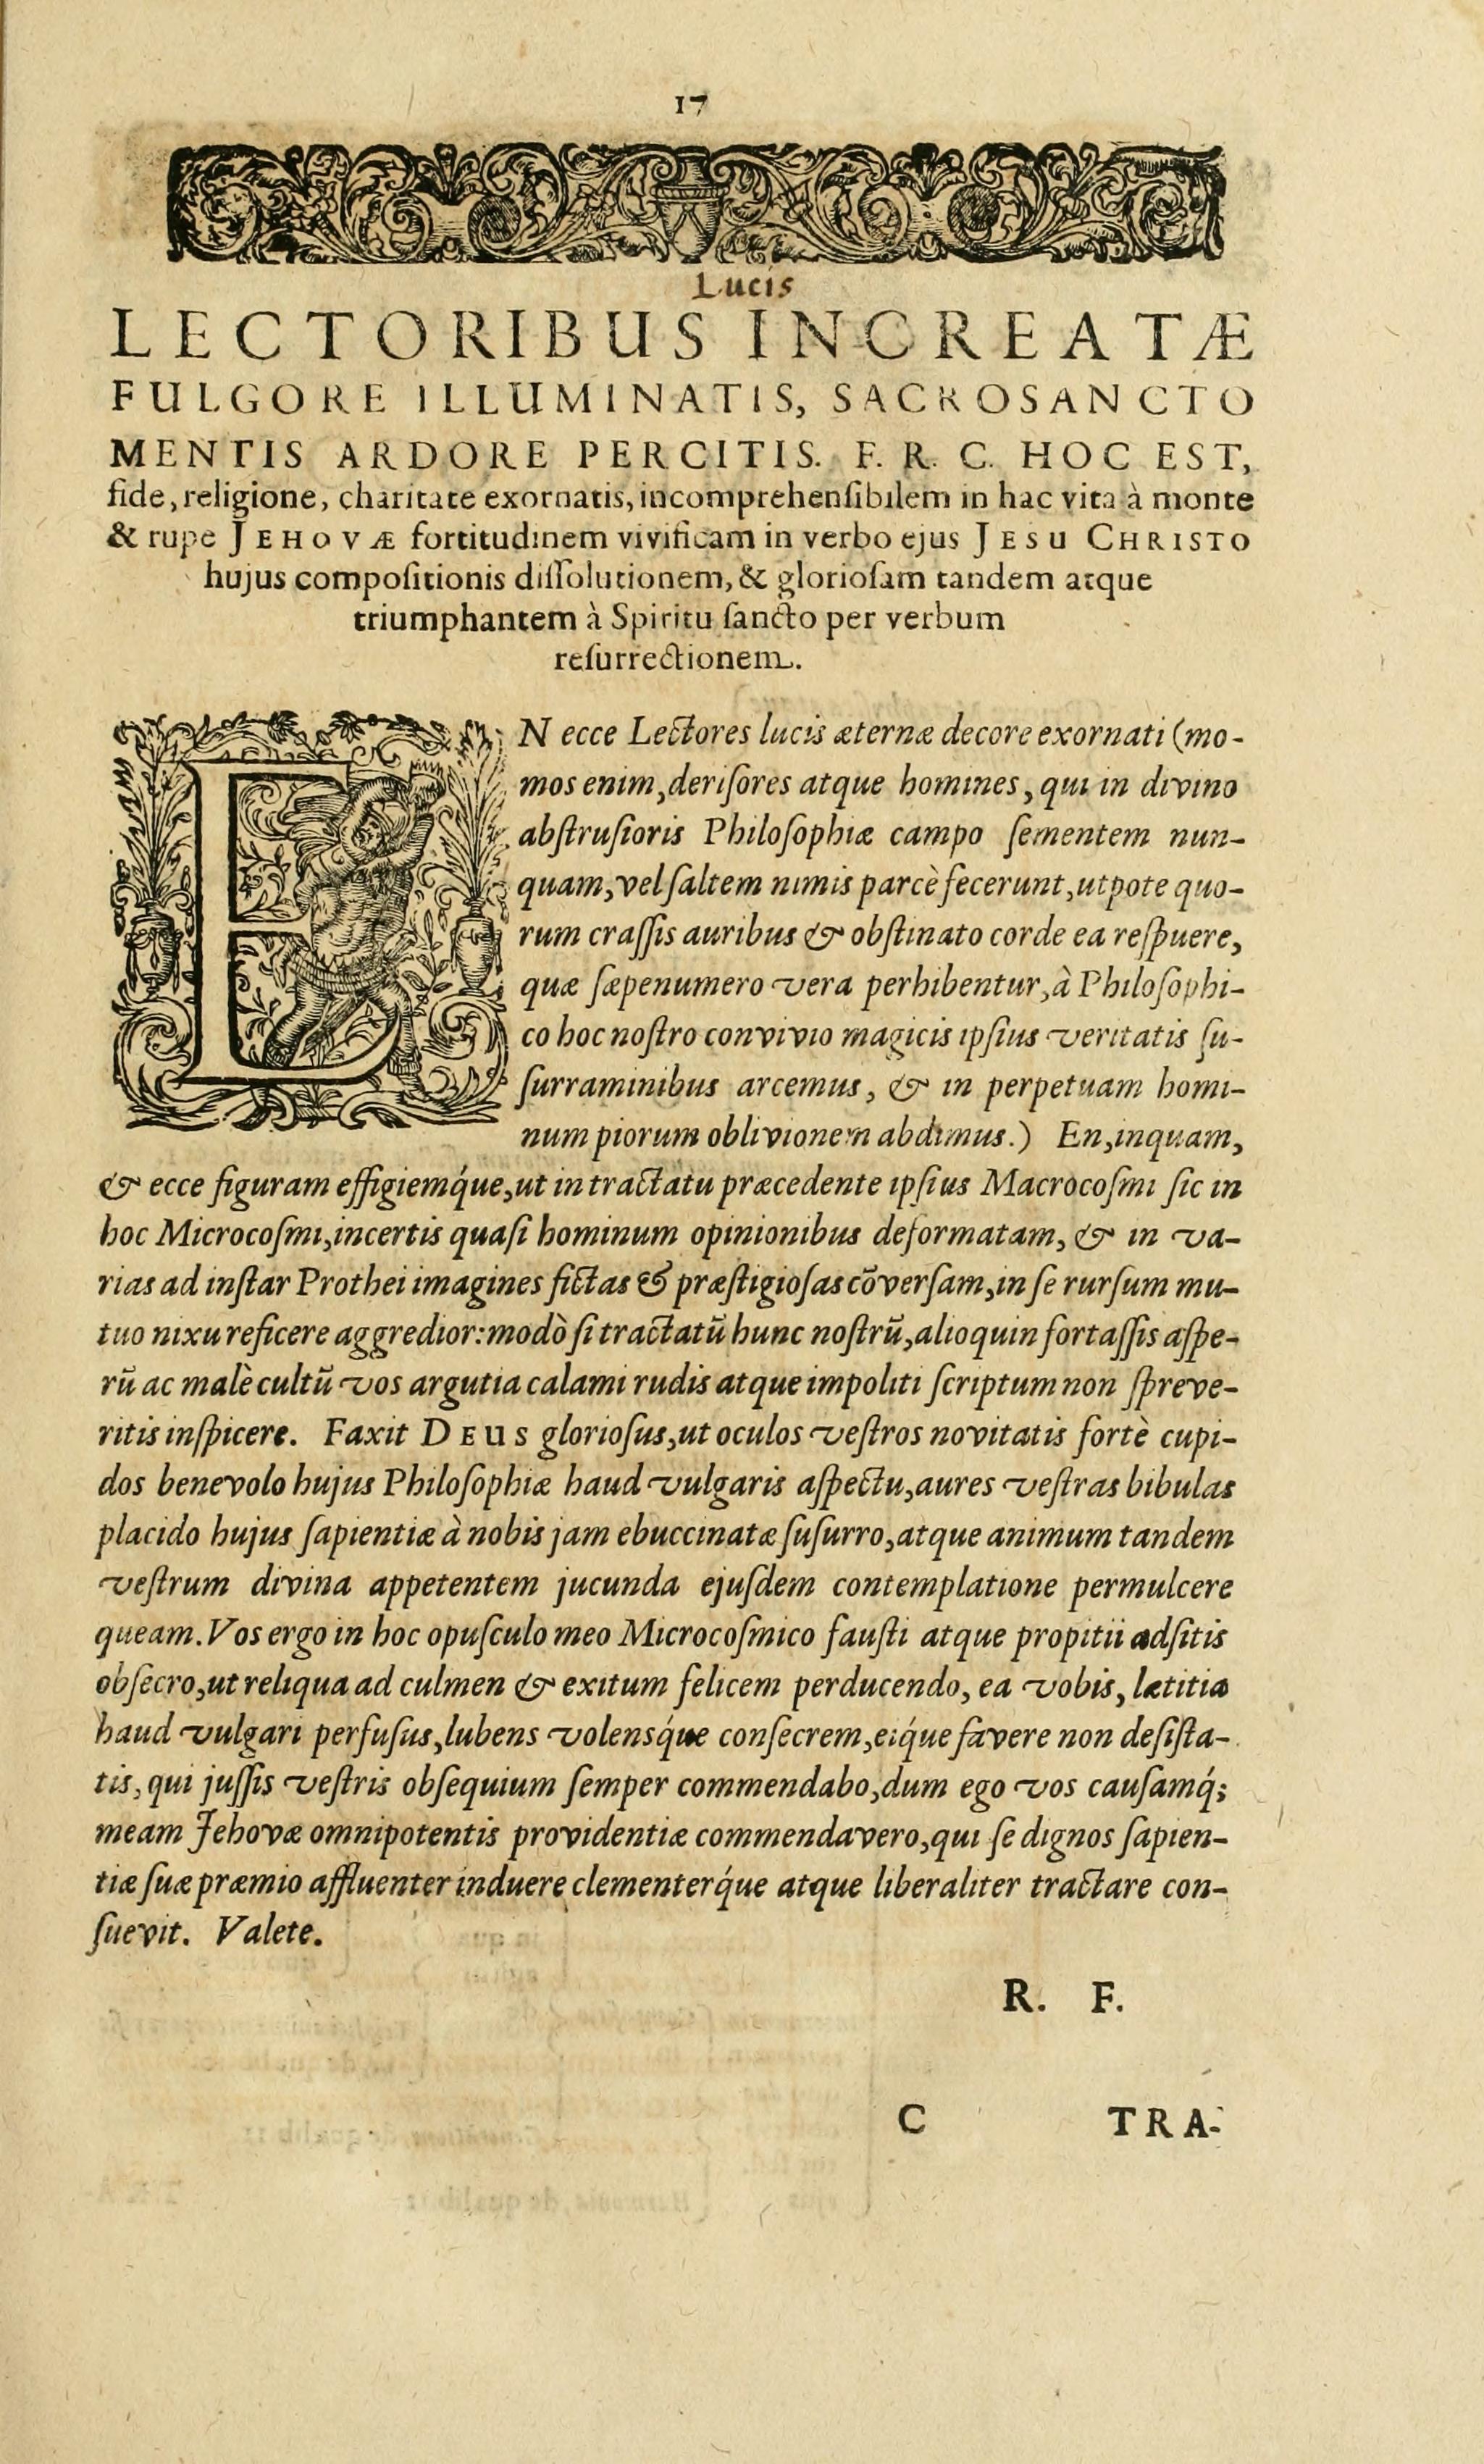 17
Lucis
LECTORIBUS INCREATÆ
FULGORE ILLUMINATIS, SACROSANCTO
MENTIS ARDORE PERCITIS. F. R. C. HOC EST,
fide, religione, charitate exornatis, incomprehenſibilem in hac vita à monte
& rupe JEHOVÆ fortitudinem vivificam in verbo ejus JESU CHRISTO
hujus compoſitionis diſſolutionem, & glorioſam tandem atque
triumphantem à Spiritu ſancto per verbum
reſurrectionem.
EN ecce Lectores lucis æternæ decore exornati (mo-
mos enim, deriſores atque homines, qui in divino
abſtruſioris Philoſophiæ campo ſementem nun-
quam, vel ſaltem nimis parcè fecerunt, utpote quo-
rum craſſis auribus & obſtinato corde ea reſpuere,
quæ ſæpenumero vera perhibentur, à Philoſophi-
co hoc noſtro convivio magicis ipſius veritatis ſu-
ſurraminibus arcemus, & in perpetuam homi-
num piorum oblivionem abdimus.) En, inquam,
& ecce figuram effigiemq́ue, ut in tractatu præcedente ipſius Macrocoſmi ſic in
hoc Microcoſmi, incertis quaſi hominum opinionibus deformatam, & in va-
rias ad inſtar Prothei imagines fictas & præſtigioſas cõverſam, in ſe rurſum mu-
tuo nixu reficere aggredior: modò ſi tractatũ hunc noſtrũ, alioquin fortaſſis aſpe-
rũ ac malè cultũ vos argutia calami rudis atque impoliti ſcriptum non ſpreve-
ritis inſpicere. Faxit DEUS glorioſus, ut oculos veſtros novitatis fortè cupi-
dos benevolo hujus Philoſophiæ haud vulgaris aſpectu, aures veſtras bibulas
placido hujus ſapientiæ à nobis jam ebuccinatæ ſuſurro, atque animum tandem
veſtrum divina appetentem jucunda ejuſdem contemplatione permulcere
queam. Vos ergo in hoc opuſculo meo Microcoſmico fauſti atque propitii adſitis
obſecro, ut reliqua ad culmen & exitum felicem perducendo, ea vobis, lætitia
haud vulgari perfuſus, lubens volensq́ue conſecrem, eiq́ue favere non deſiſta-
tis, qui juſſis veſtris obſequium ſemper commendabo, dum ego vos cauſamq́;
meam Jehovæ omnipotentis providentiæ commendavero, qui ſe dignos ſapien-
tiæ ſuæ præmio affluenter induere clementerq́ue atque liberaliter tractare con-
ſuevit. Valete.
R. F.
C TRA-